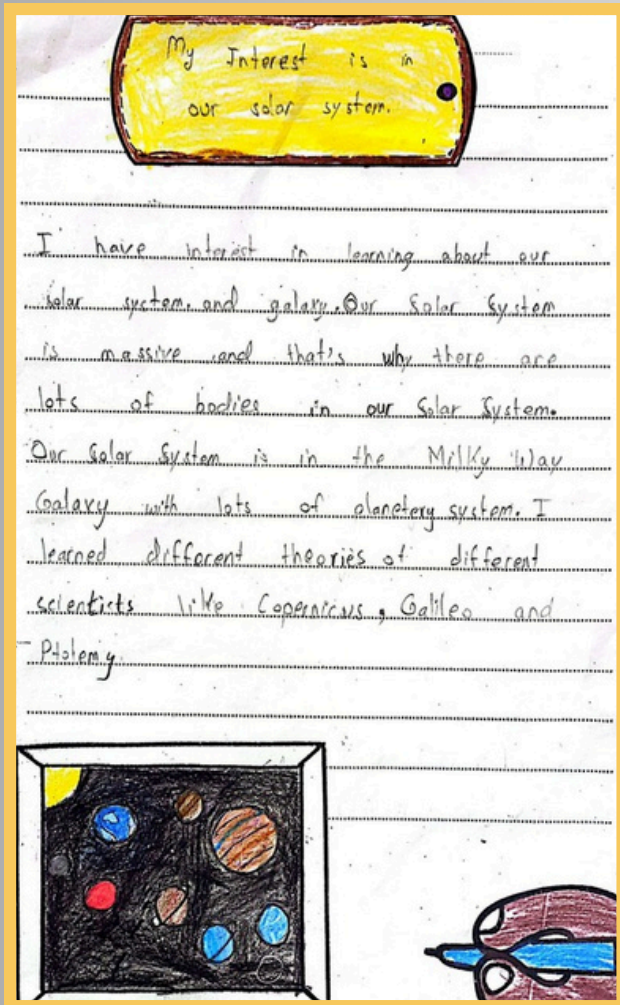 My Interest is in
our solar system.
I have interest in learning about our
solar system. and galaxy. Our Solar System
is massive and that's why there are
lots of bodies in our Solar System.
Our Solar System is in the Milky Way
Galaxy with lots of planetery system. I
learned different theories of different
scienticts like Copernicus, Galileo and
Ptolemy.